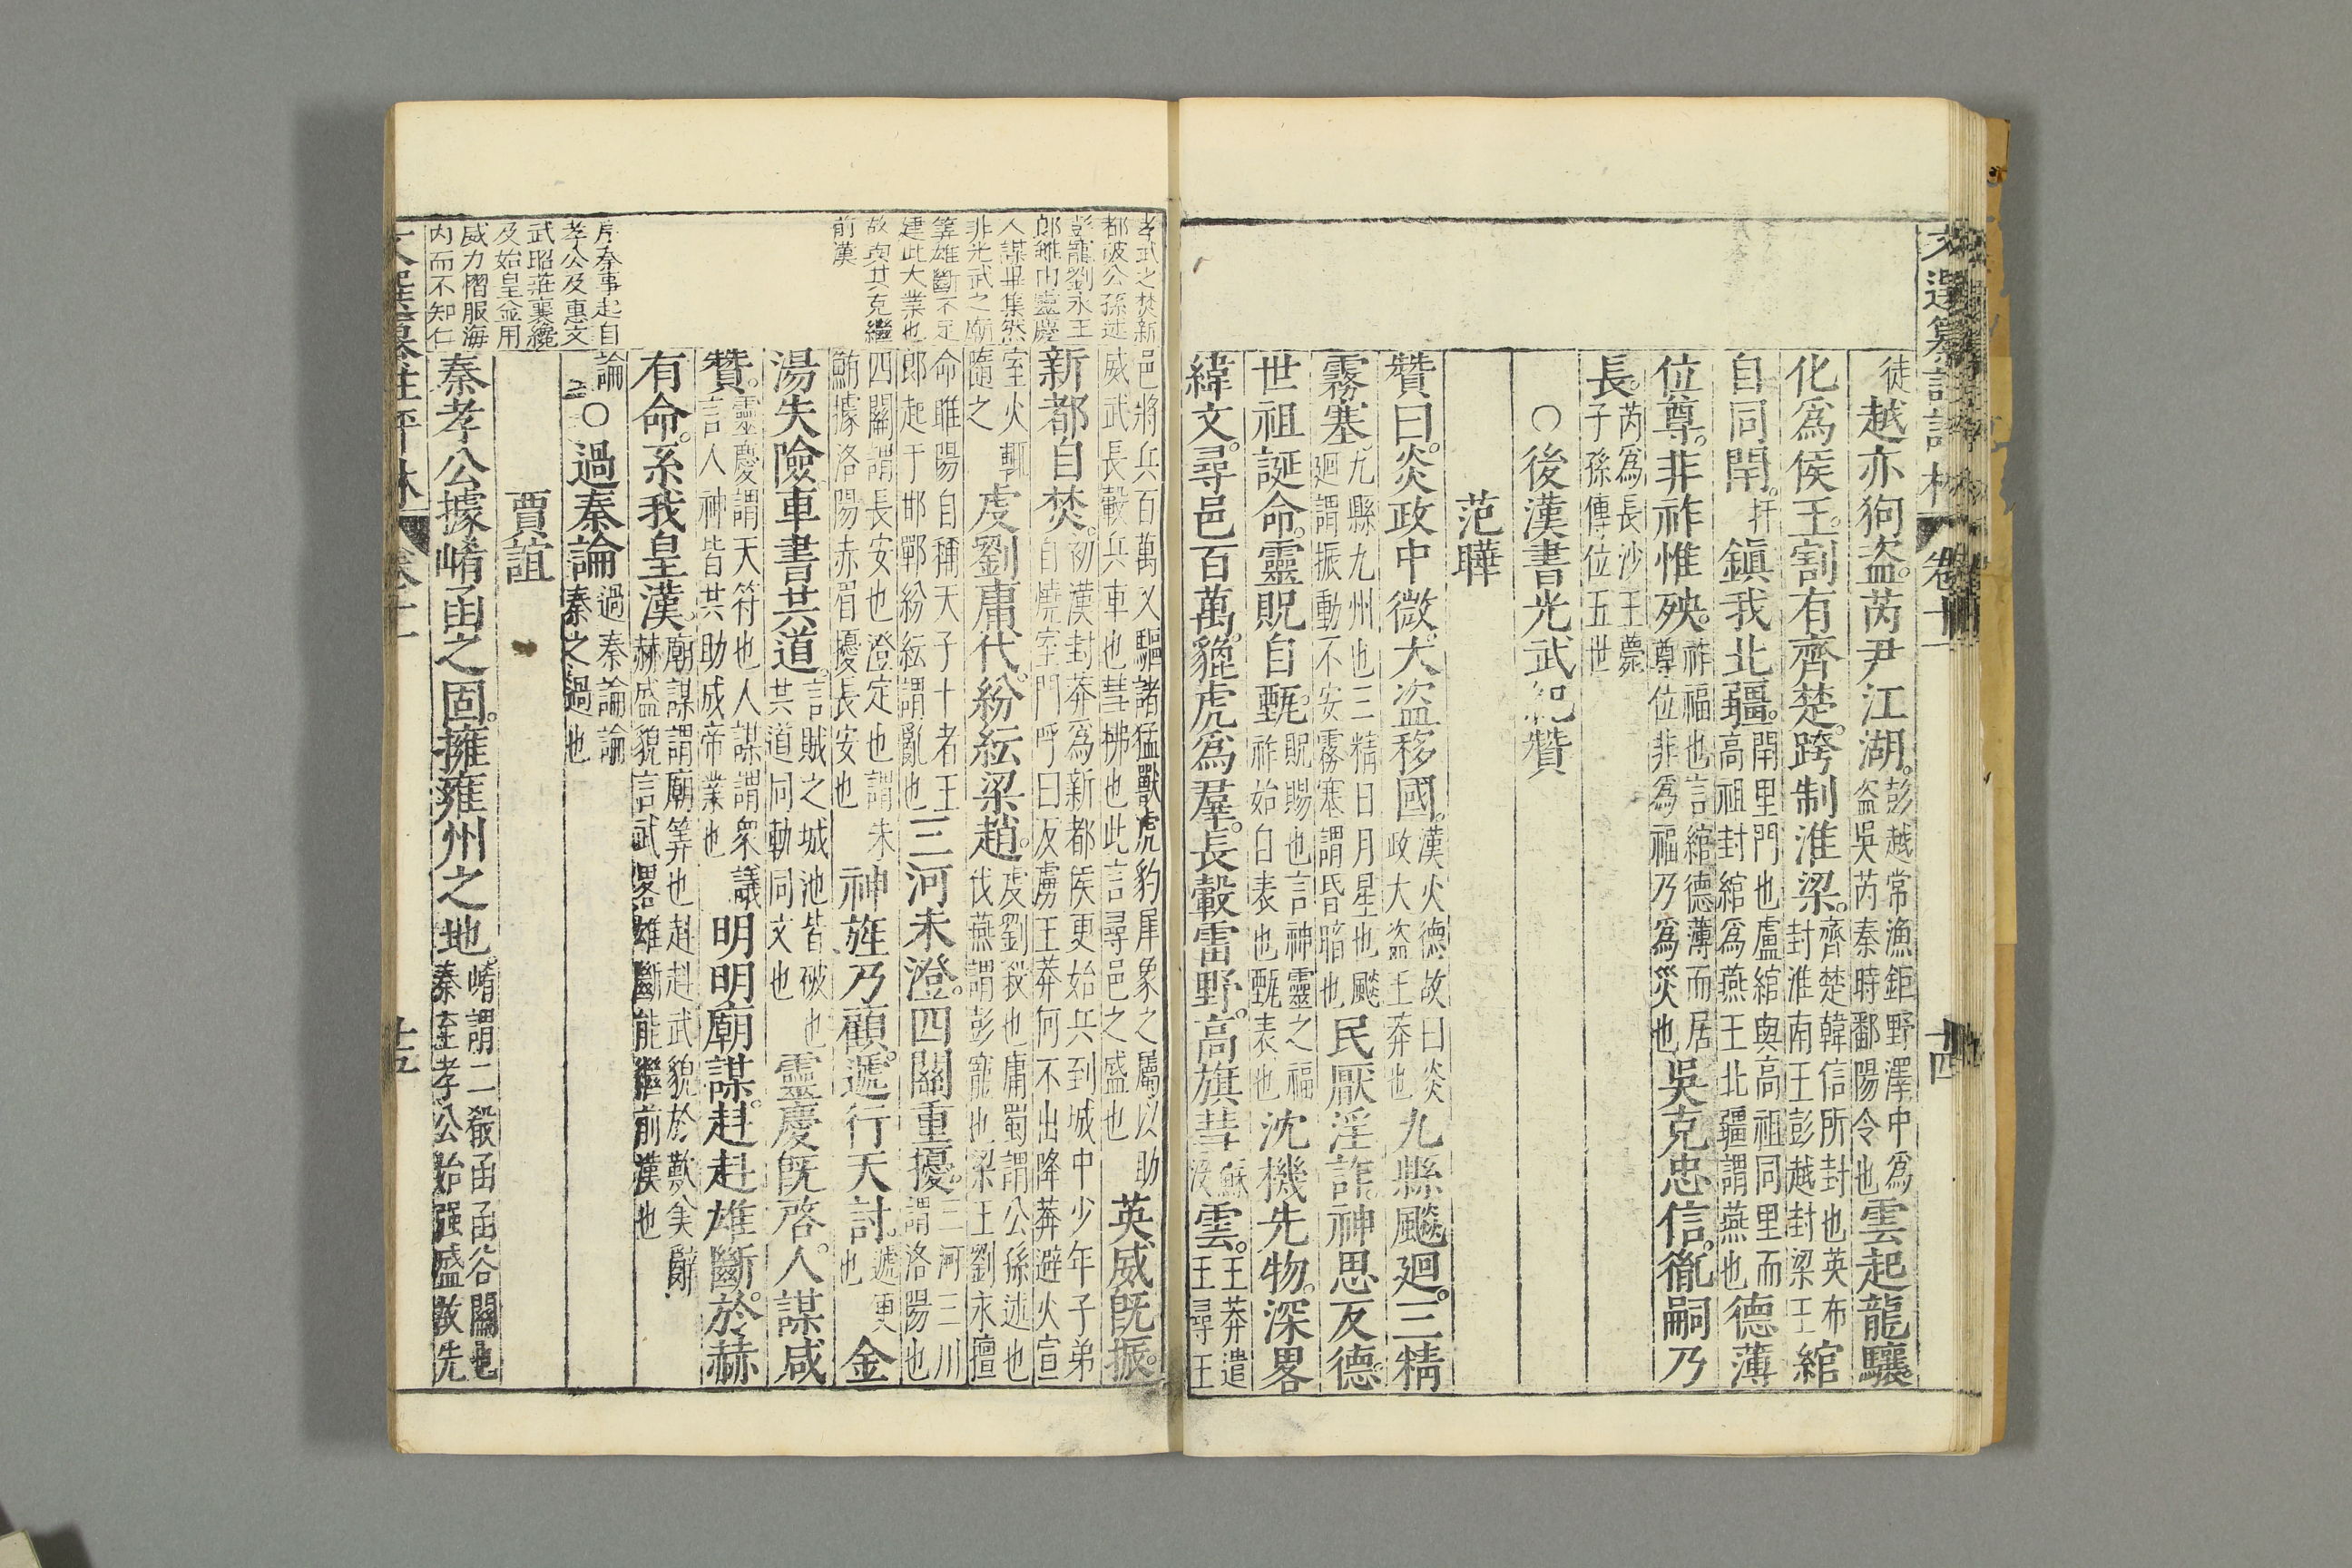 文選纂註評林 卷十一 十四
徒越亦狗盗芮尹江湖彭越常漁鉅野澤中為盗吳芮秦時鄱陽令也雲起龍驤
化爲侯王割有齊楚跨制淮梁齊楚韓信所封也英布封淮南王彭越封梁王綰
自同閈扞鎮我北疆閈里門也盧綰與高祖同里而高祖封綰爲燕王北疆謂燕也德薄
位尊非祚惟殃祚福也言綰德薄而居尊位非爲福乃爲災也吳克忠信胤嗣乃
長芮爲長沙王薨子孫傳位五世
○後漢書光武紀贊
范曄
贊曰炎政中微大盗移國漢火德故曰炎政大盗王莽也九縣飈廻三精
霧塞九縣九州也三精日月星也飈廻謂振動不安霧塞謂昏暗也民厭淫詐神思反德
世祖誕命靈貺自甄貺賜也言神靈之福祚始自表也甄表也沈機先物深畧
緯文尋邑百萬貔虎爲羣長轂雷野高旗彗雲王莽遣王尋王
邑將兵百萬又驅諸猛獸虎豹犀象之屬以助威武長轂兵車也彗拂也此言尋邑之盛也英威既振
新都自焚初漢封莽爲新都侯更始兵到城中少年子弟自燒室門呼曰反虜王莽何不出降莽避火宣
室火輒隨之虔劉庸代紛紜梁趙虔劉殺也庸蜀謂公孫述也伐燕謂彭寵也梁王劉永擅
命睢陽自稱天子十者王郎起于邯鄲紛紜謂亂也三河未澄四關重擾三河三川謂洛陽也
四關謂長安也澄定也謂朱鮪據洛陽赤眉擾長安也神旌乃顧遞行天討遞更也金
湯失險車書共道言賊之城池皆破也共道同軌同文也靈慶既啓人謀咸
贊靈慶謂天符也人謀謂衆議言人神皆共助成帝業也明明廟謀赳赳雄斷於赫
有命系我皇漢廟謀謂廟筭也赳赳武貌於歎美辭赫盛貌言武畧雄斷能繼前漢也
論二○過秦論過秦論論秦之過也
賈誼
秦孝公據崤函之固擁雍州之地崤謂二殽函函谷關也秦至孝公始强盛故先
孝武之焚新
都破公孫述
彭寵劉永王
郎雖由靈慶
人謀畢集然
非光武之廟
筭雄斷不足
建此大業也
故與其克繼
前漢
序秦事起自
孝公及惠文
武昭莊襄纔
及始皇並用
威力慴服海
内而不知仁
文選纂註評林 卷十一 十五